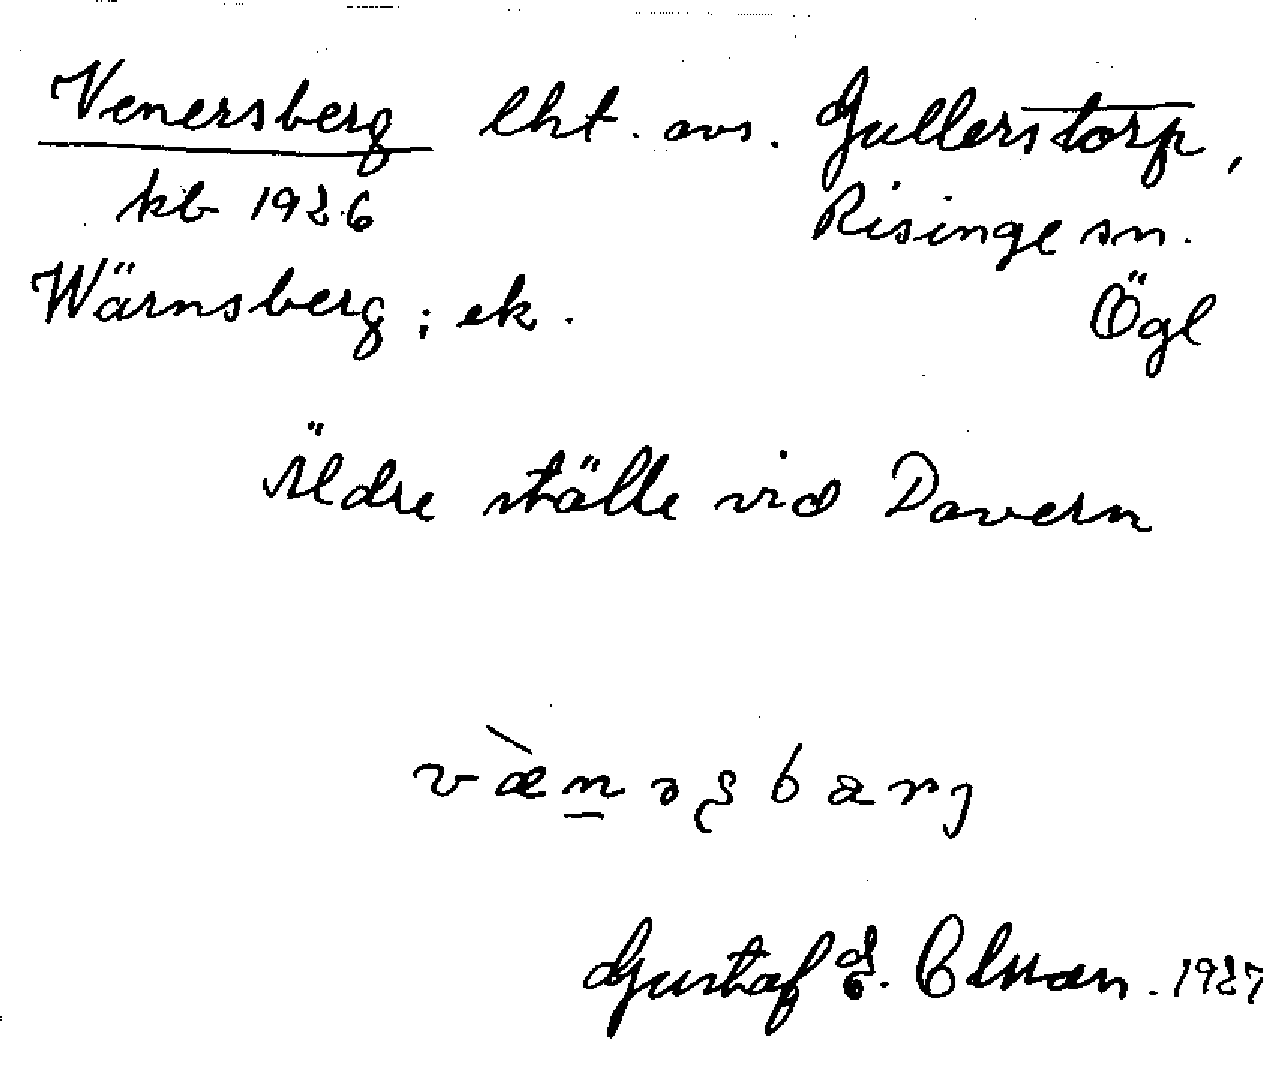 Venersberg lht. avs. Gullerstorp,
kb 1926 Risinge sn.
Wärnsberg; ek. Ögl
Äldre ställe vid Dovern
Gustaf 1927